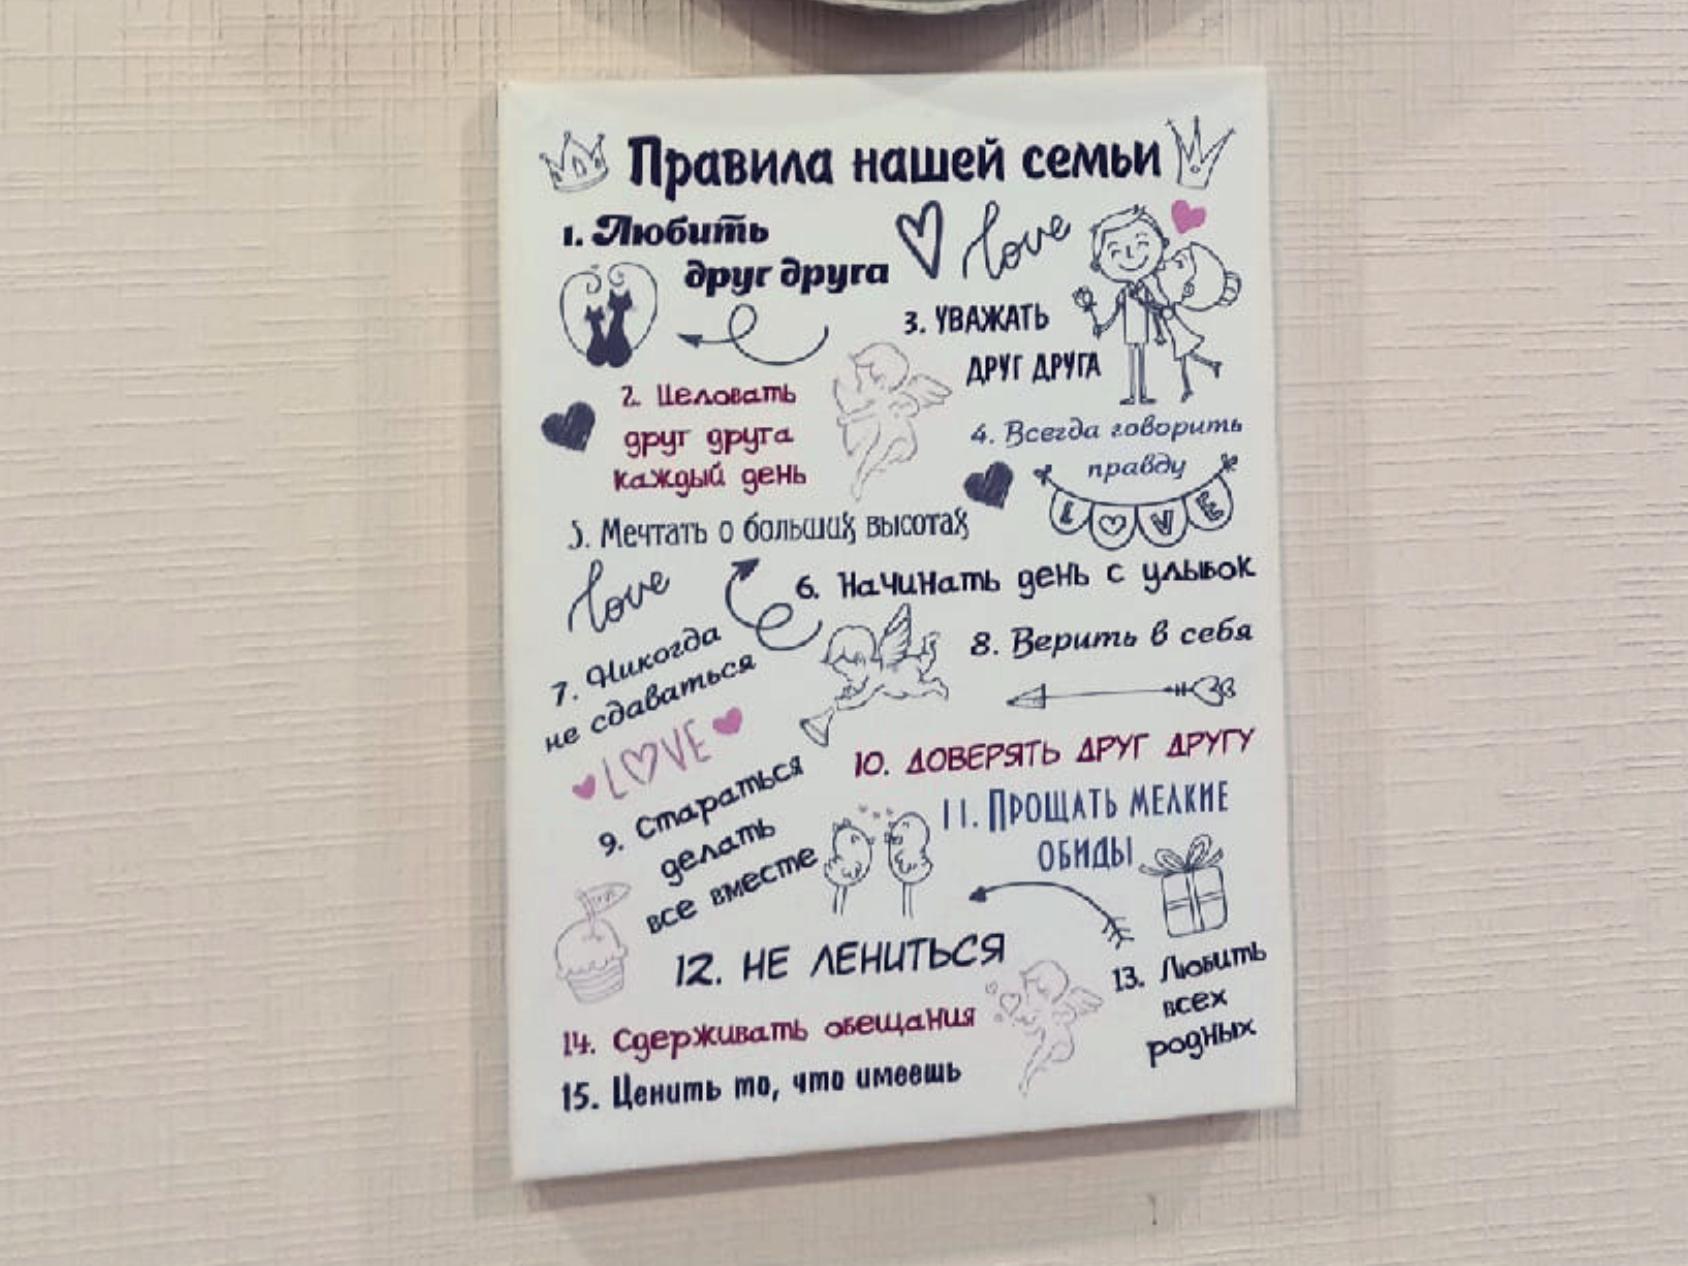 Правила нашей семьи
1. Любить
друг друга
love
2. Целовать
друг друга
каждый день
3. УВАЖАТЬ
ДРУГ ДРУГА
4. Всегда говорить
правду
LOVE
5. Мечтать о больших высотах
love
6. Начинать день с улыбок
7. Никогда
не сдаваться
8. Верить в себя
LOVE
9. Стараться
делать
все вместе
10. ДОВЕРЯТЬ ДРУГ ДРУГУ
11. ПРОЩАТЬ МЕЛКИЕ
ОБИДЫ
12. НЕ ЛЕНИТЬСЯ
13. Любить
всех
родных
14. Сдерживать обещания
15. Ценить то, что имеешь